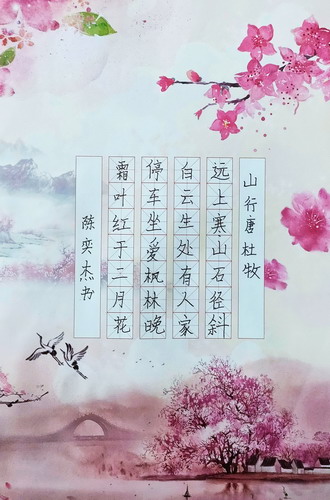 山行唐杜牧
远上寒山石径斜
白云生处有人家
停车坐爱枫林晚
霜叶红于二月花
陈奕杰书